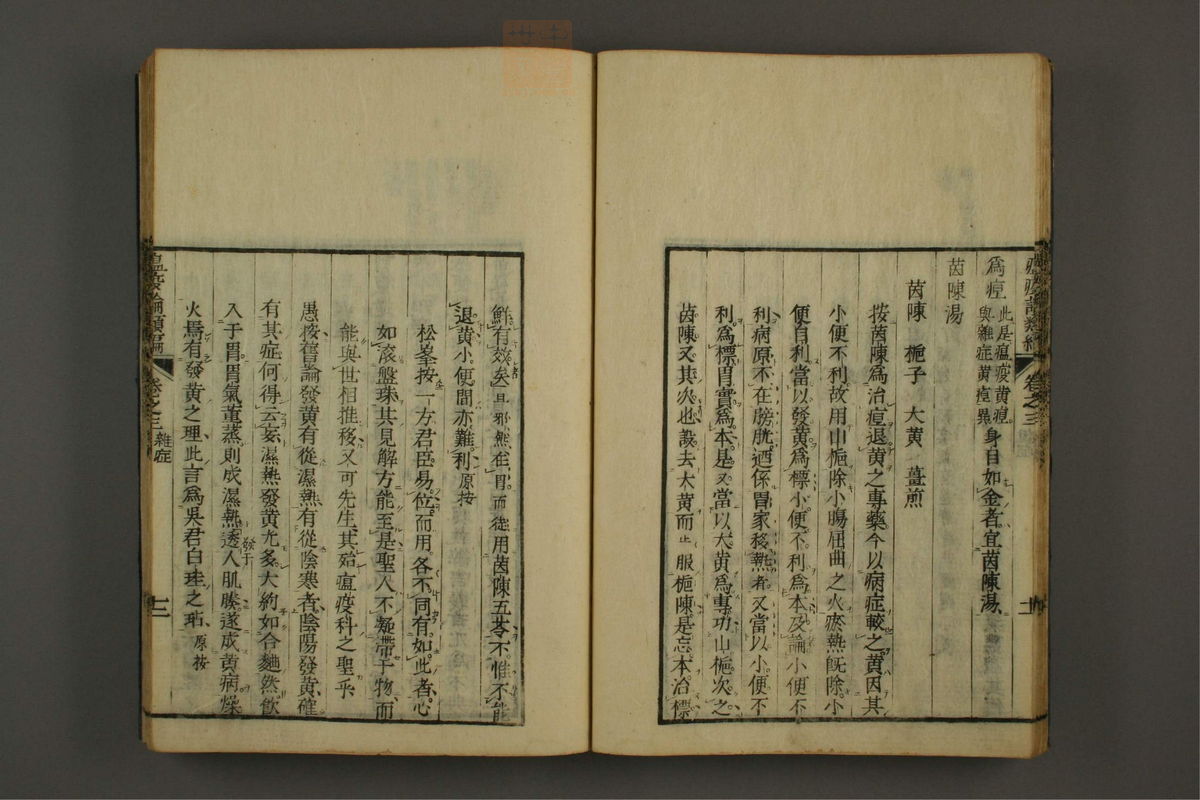 瘟疫論類編 卷之三
爲疸此是瘟疫黃疸與雜症黃疸異身目如金者宜茵陳湯
茵陳湯
茵陳 梔子 大黃 薑煎
按茵陳爲治疸退黃之專藥今以病症較之黃因其
小便不利故用山梔除小腸屈曲之火瘀熱旣除小
便自利當以發黃爲標小便不利爲本及論小便不
利病原不在膀胱廼係胃家移熱者又當以小便不
利爲標胃實爲本是又當以大黃爲專功山梔次之
茵陳又其次也設去大黃而止服梔陳是忘本治標
鮮有效矣且邪熱在胃而徒用茵陳五苓不惟不能
退黃小便間亦難利原按
松峯按一方君臣易位而用各不同有如此者心
如滾盤珠其見解方能至是聖人不疑滯于物而
能與世相推移又可先生其殆瘟疫科之聖乎
愚按舊論發黃有從濕熱有從陰寒者陰陽發黃確
有其症何得云妄濕熱發黃尤多大約如合麯然飮
入于胃胃氣薰蒸則成濕熱透發于人肌腠遂成黃病燥
火焉有發黃之理此言爲吳君白珪之玷原按
瘟疫論類編 卷之三 雜症 十二